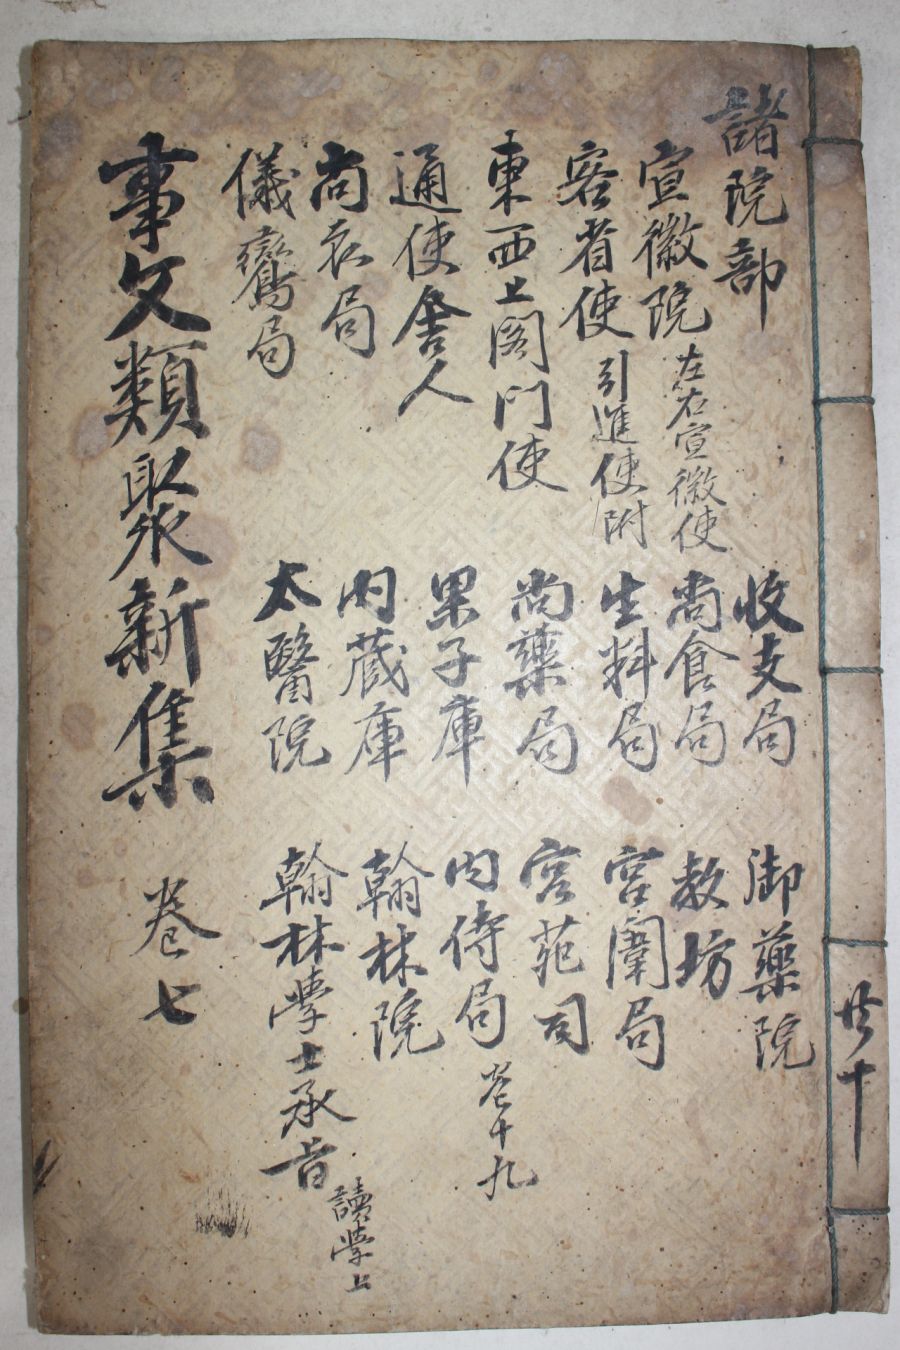 諸院部
宣徽院 左右宣徽使
客省使 引進使附
東西上閣門使
通使舍人
尚衣局
儀鸞局
收支局
尚食局
生料局
尚藥局
果子庫
內蔵庫
太醫院
御藥院
教坊
宮闈局
宮苑司
內侍局 卷十九
翰林院
翰林學士承旨
讀學上
事文類聚新集 卷七
共十